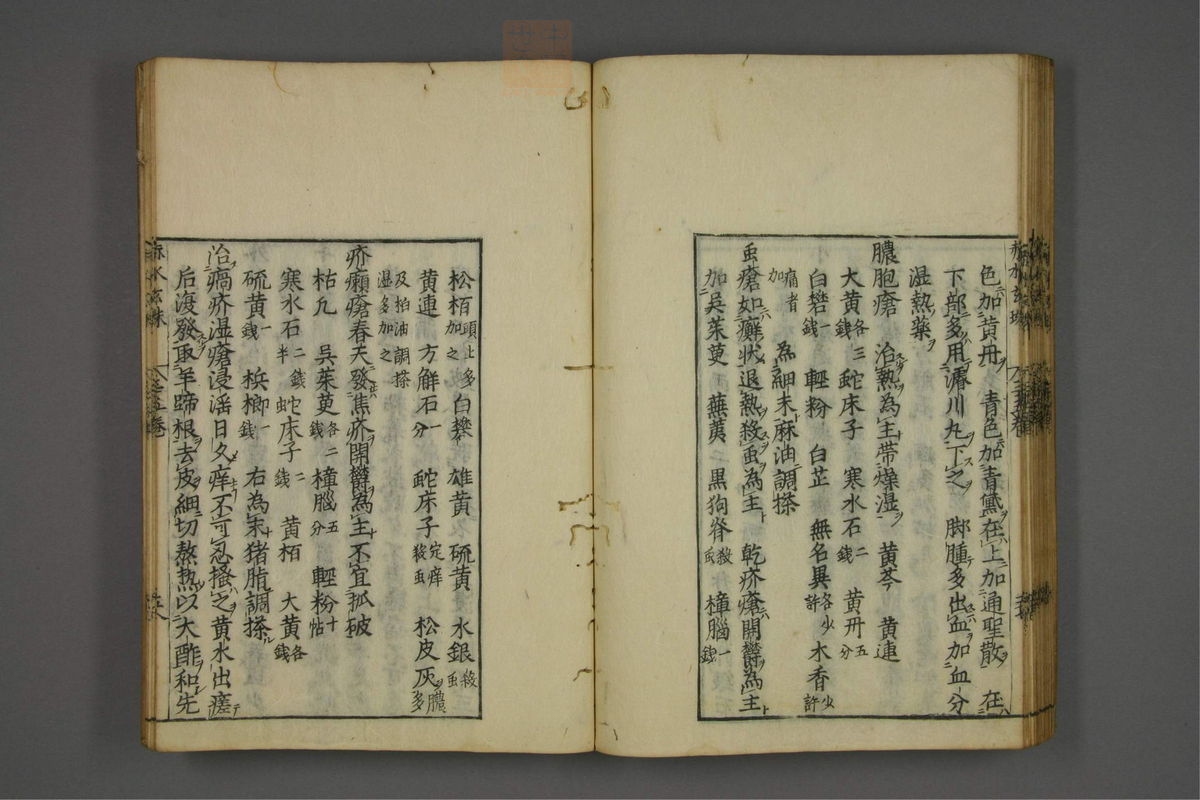 色加黄丹 青色加青黛在上加通聖散 在
下部多用濬川丸下之 脚腫多出血加血分
湿熱薬
膿胞瘡 治熱為主帯燥湿 黄芩 黄連
大黄各三錢 蛇床子 寒水石二錢 黄丹五分
白礬一錢 輕粉 白芷 無名異各少許 木香少許
痛者加 為細末麻油調搽
虫瘡如癬状退熱殺虫為主 乾疥瘡開欝為主
加吳茱萸 蕪荑二 黒狗脊殺虫 樟腦一錢
松栢頭上多加之 白礬 雄黄 硫黄 水銀殺虫
黄連 方解石一分 蛇床子定痒殺虫 松皮灰膿多
湿多加之及拍油調搽
疥癩瘡春天發焦疥開欝為主不宜抓破
枯凢 吳茱萸各二錢 樟腦五分 輕粉十帖
寒水石二錢半 蛇床子二錢 黄栢 大黄各錢
硫黄一錢 梹榔一錢 右為末猪脂調搽
治瘑疥湿瘡浸淫日久痒不可忍搔之黄水出瘥
后復發取羊蹄根去皮細切熬熱以大酢和先